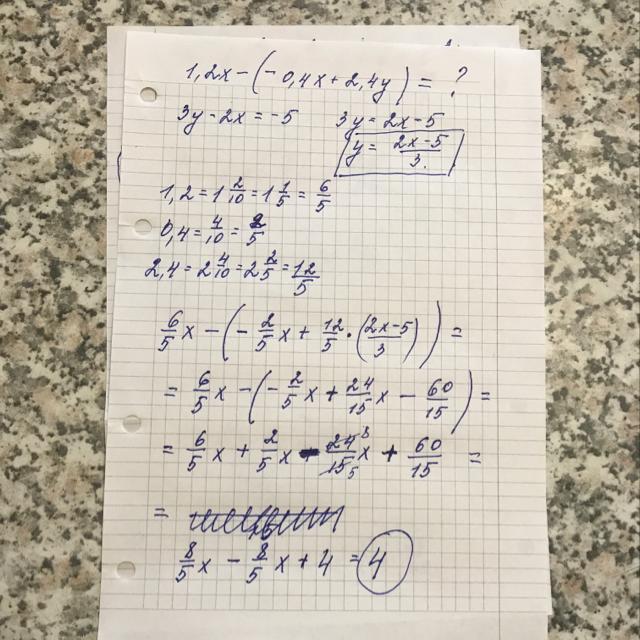 1,2x - (-0,4x + 2,4y) = ?
3y - 2x = -5 3y = 2x - 5
y = \frac{2x-5}{3}.
1,2 = 1\frac{2}{10} = 1\frac{1}{5} = \frac{6}{5}
0,4 = \frac{4}{10} = \frac{2}{5}
2,4 = 2\frac{4}{10} = 2\frac{2}{5} = \frac{12}{5}
\frac{6}{5}x - (-\frac{2}{5}x + \frac{12}{5} \cdot (\frac{2x-5}{3})) =
= \frac{6}{5}x - (-\frac{2}{5}x + \frac{24}{15}x - \frac{60}{15}) =
= \frac{6}{5}x + \frac{2}{5}x - \frac{24^8}{15_5}x + \frac{60}{15} =
=
\frac{8}{5}x - \frac{8}{5}x + 4 = 4